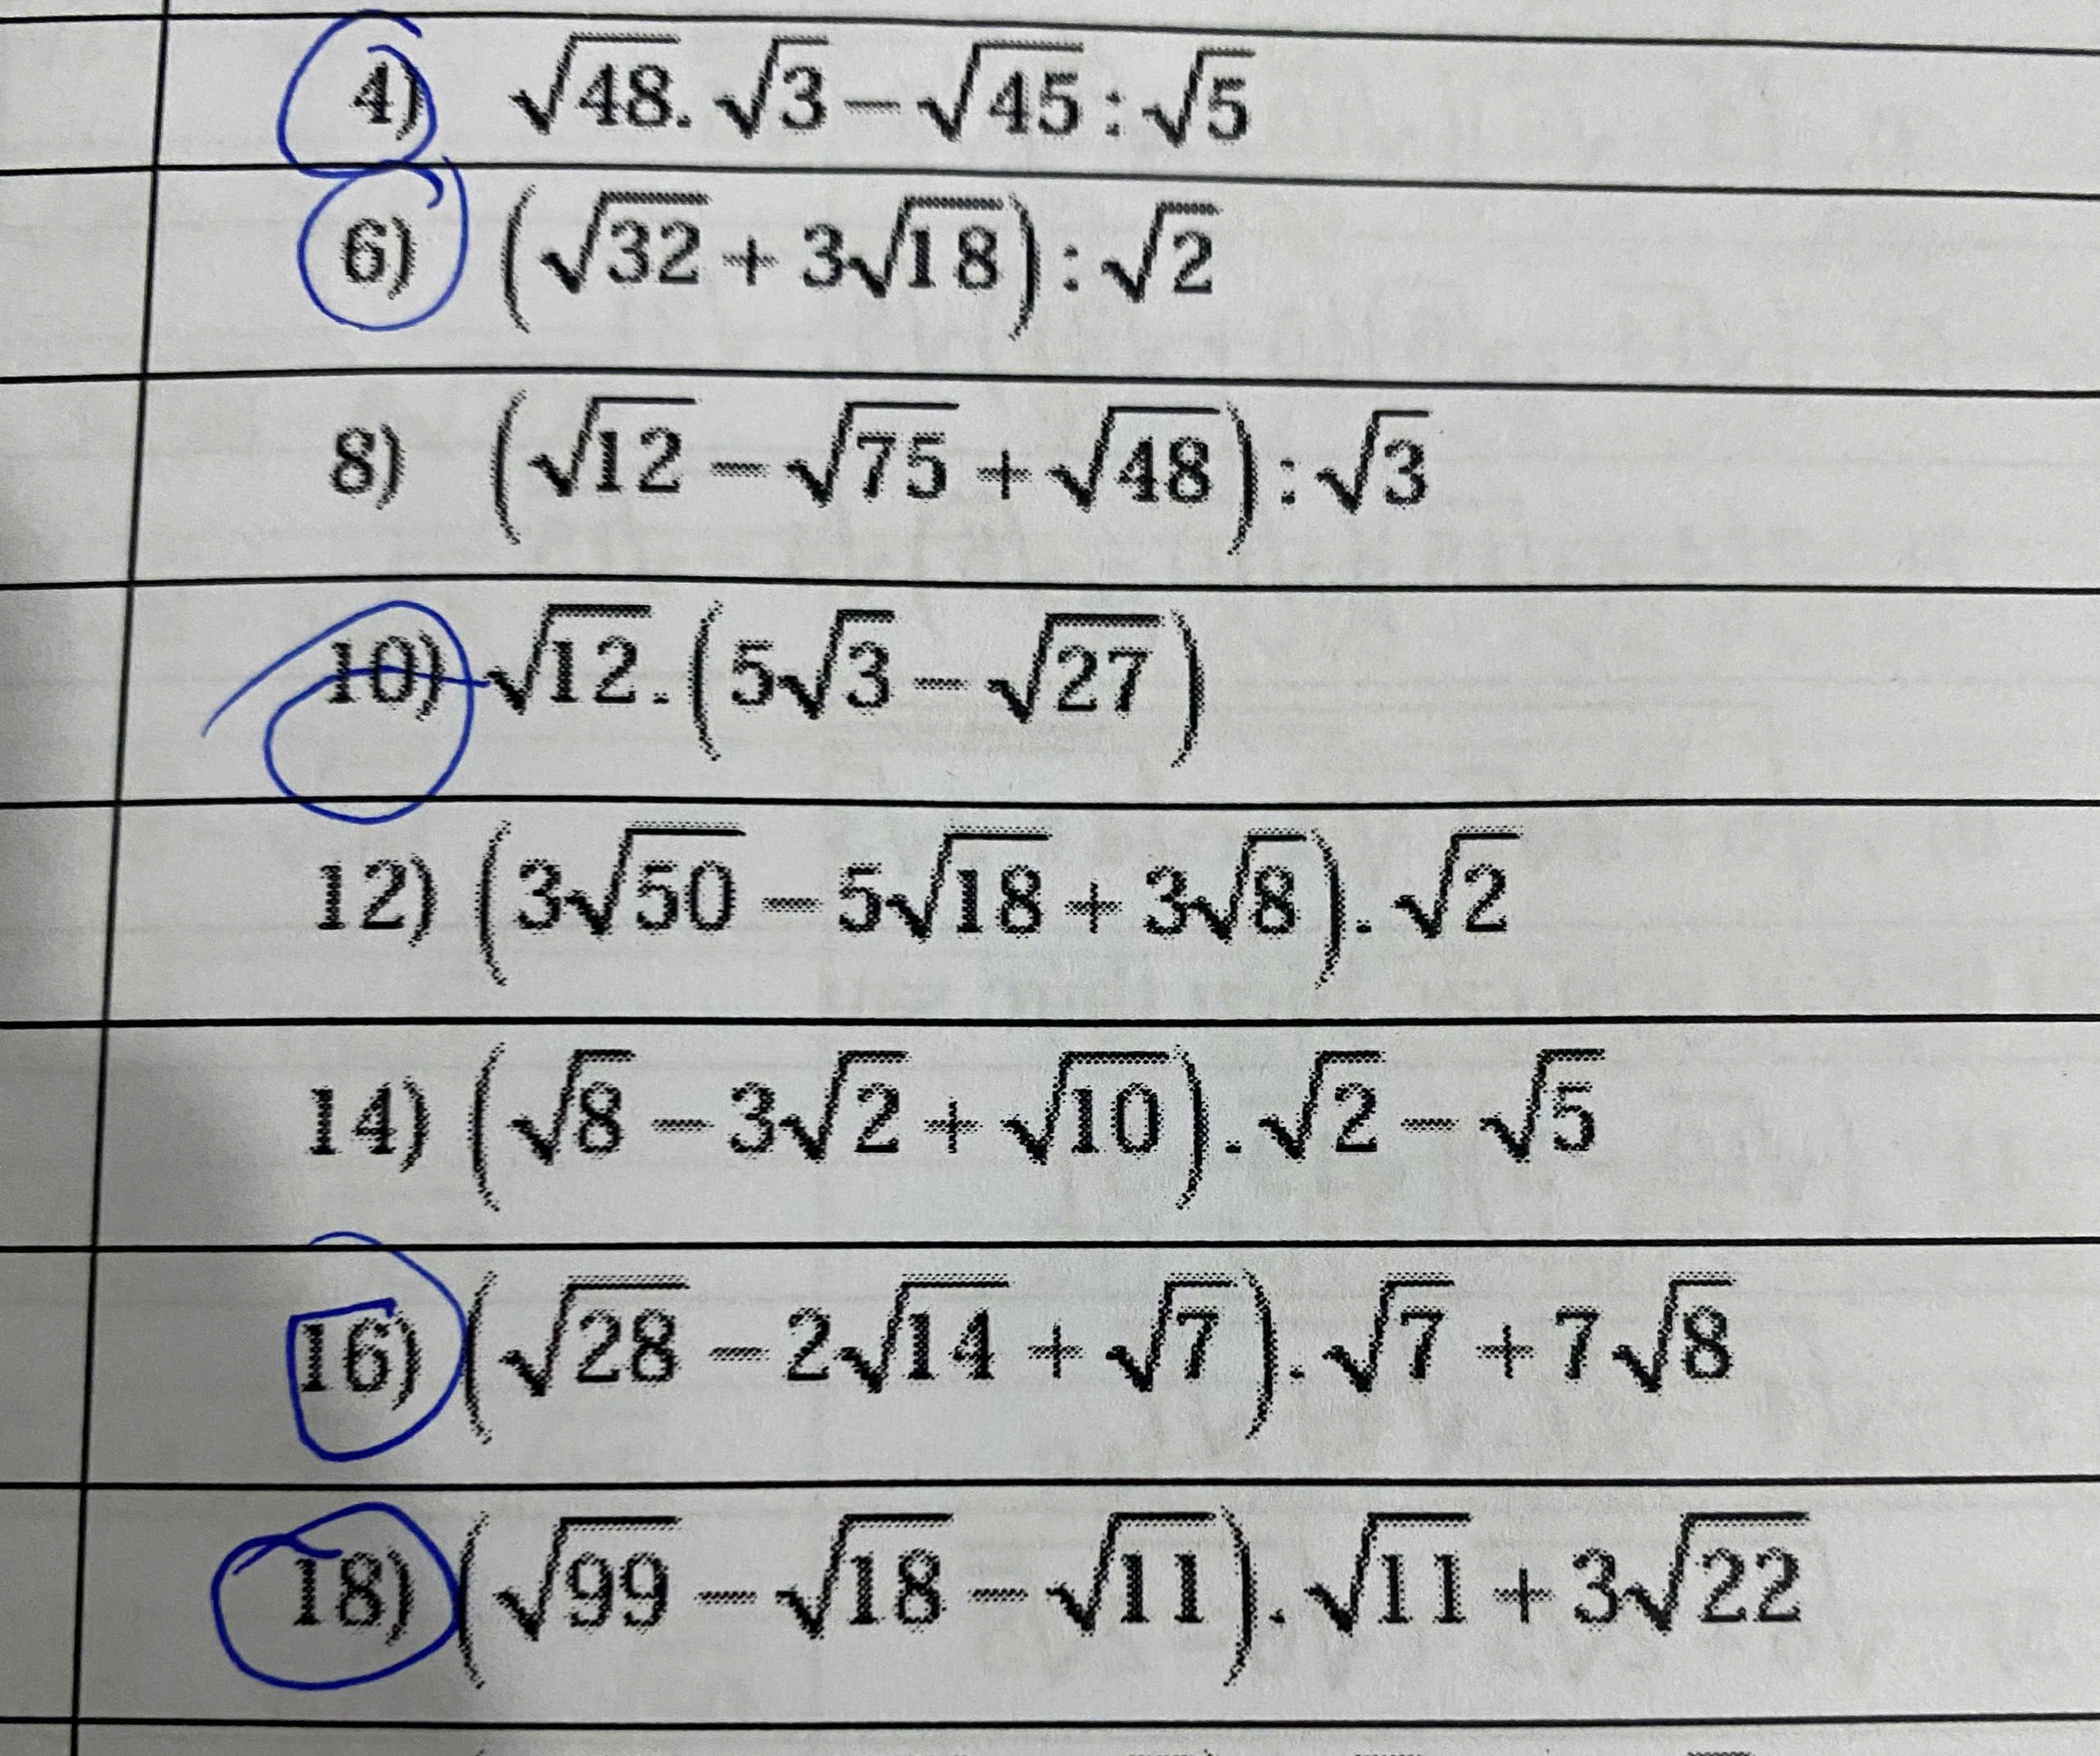 4) √48. √3 − √45 : √5
6) (√32 + 3√18) : √2
8) (√12 − √75 + √48) : √3
10) √12. (5√3 − √27)
12) (3√50 − 5√18 + 3√8). √2
14) (√8 − 3√2 + √10). √2 − √5
16) (√28 − 2√14 + √7). √7 + 7√8
18) (√99 − √18 − √11). √11 + 3√22